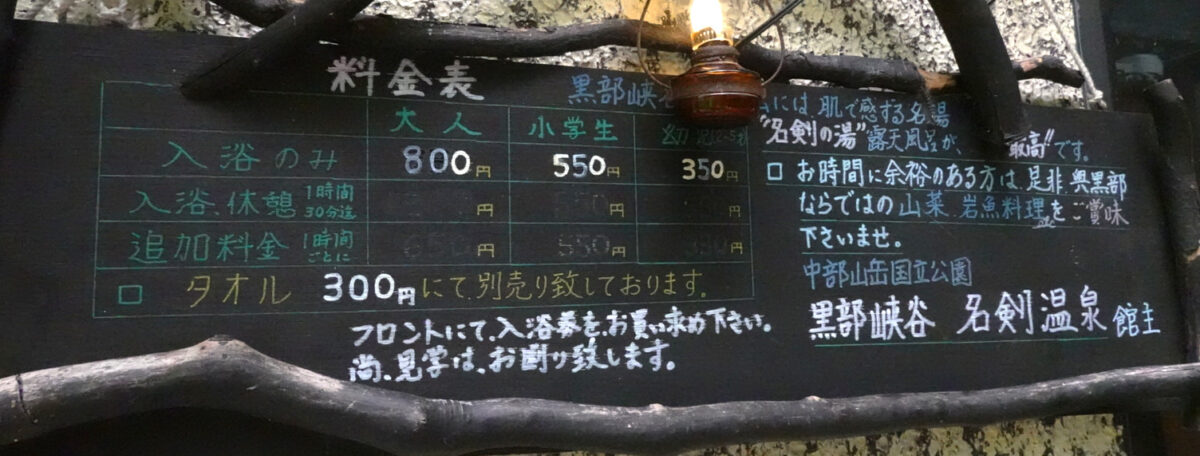 料金表
大人 小学生 幼児
入浴のみ 800円 550円 350円
入浴、休憩 1時間30分迄 円 円 円
追加料金 1時間ごとに 円 550円 円
□ タオル 300円にて、別売り致しております。
フロントにて、入浴券を、お買い求め下さい。
尚、見学は、お断り致します。
黒部峡谷
には 肌で感ずる名湯
"名剣の湯"露天風呂が、"最高"です。
□ お時間に余裕のある方は、是非、奥黒部
ならではの山菜、岩魚料理をご賞味
下さいませ。
中部山岳国立公園
黒部峡谷 名剣温泉 館主